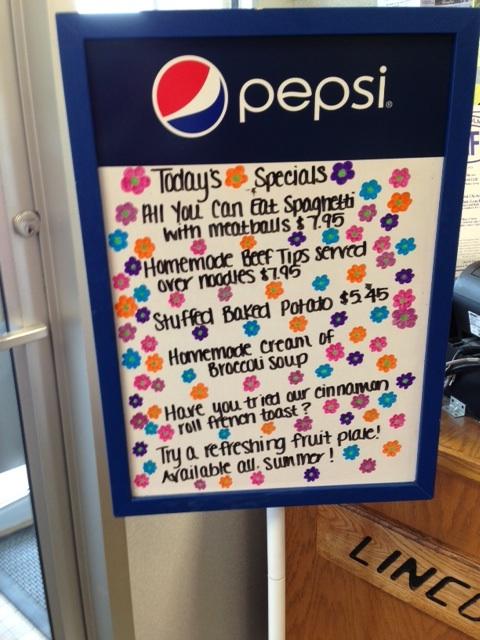 pepsi
Today's Specials
All You Can Eat Spaghetti
with meatballs $7.95
Homemade Beef Tips served
over noodles $7.95
Stuffed Baked Potato $5.45
Homemade Cream of
Broccoli soup
Have you tried our cinnamon
roll french toast?
Try a refreshing fruit plate!
Available all summer!
LINCO